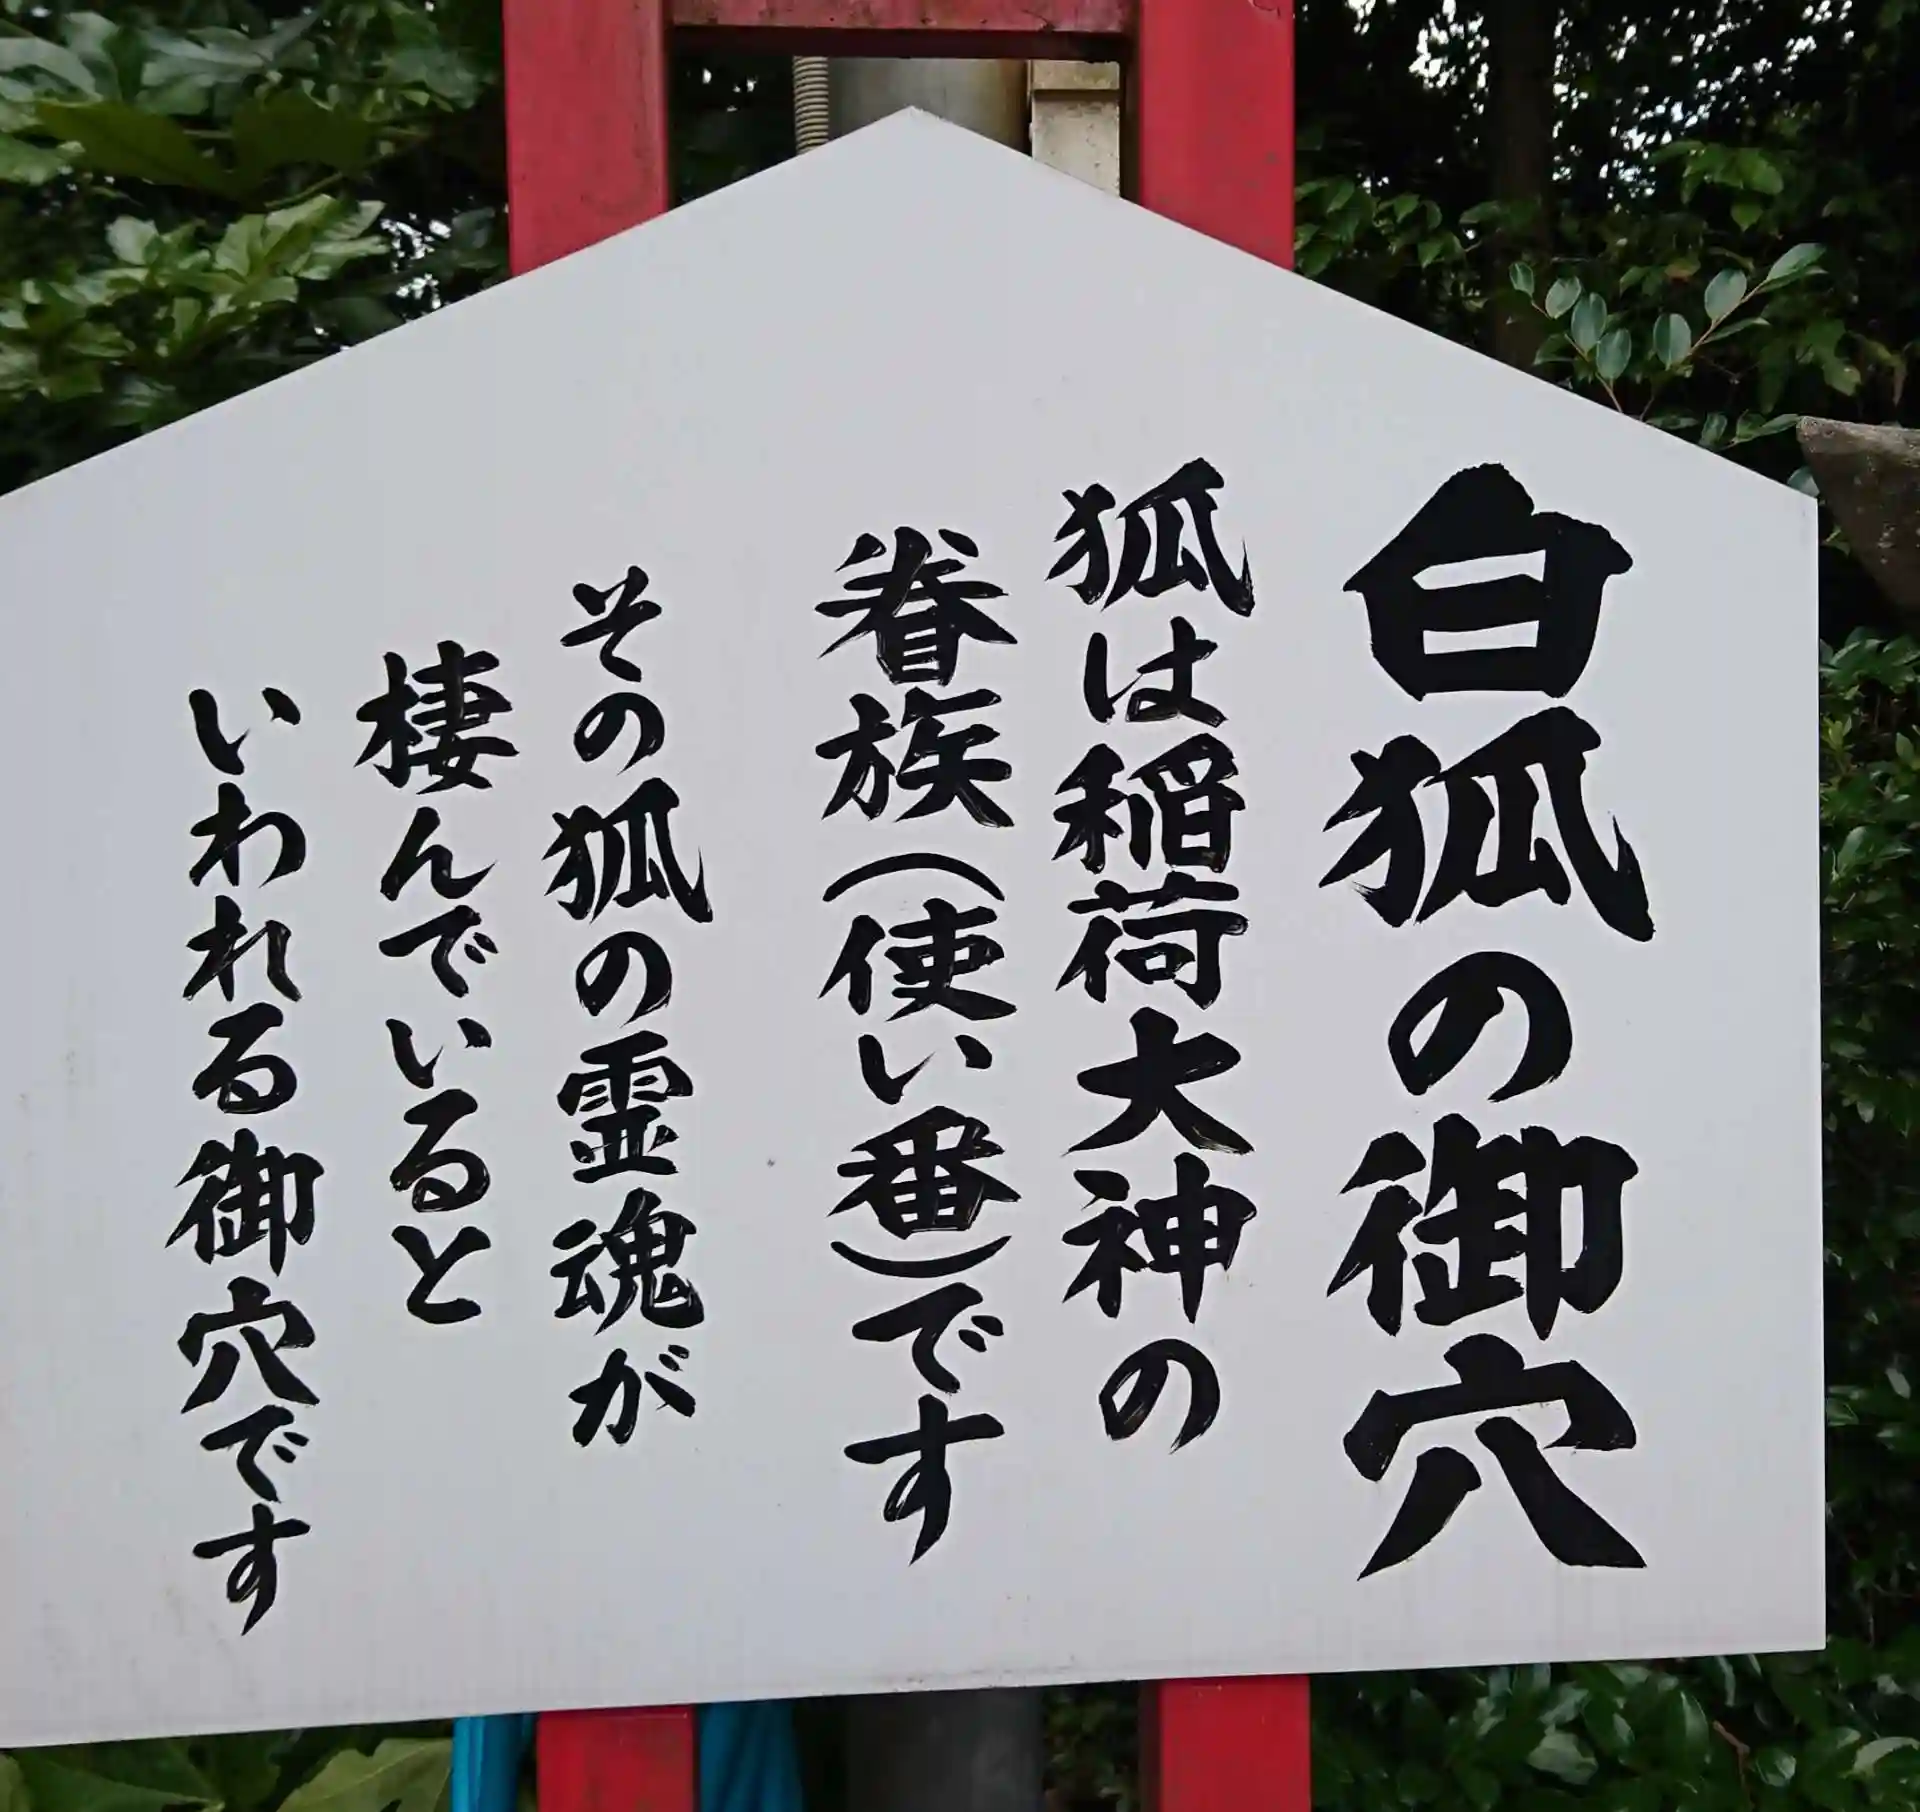 白狐の御穴
狐は稲荷大神の
眷族(使い番)です
その狐の霊魂が
棲んでいると
いわれる御穴です